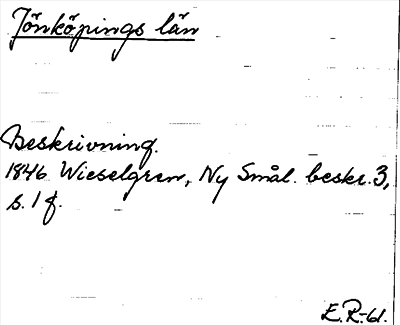 Jönköpings län
Beskrivning.
1846 Wieselgren, Ny Smål. beskr. 3,
s. 1 f.
E.R-61.